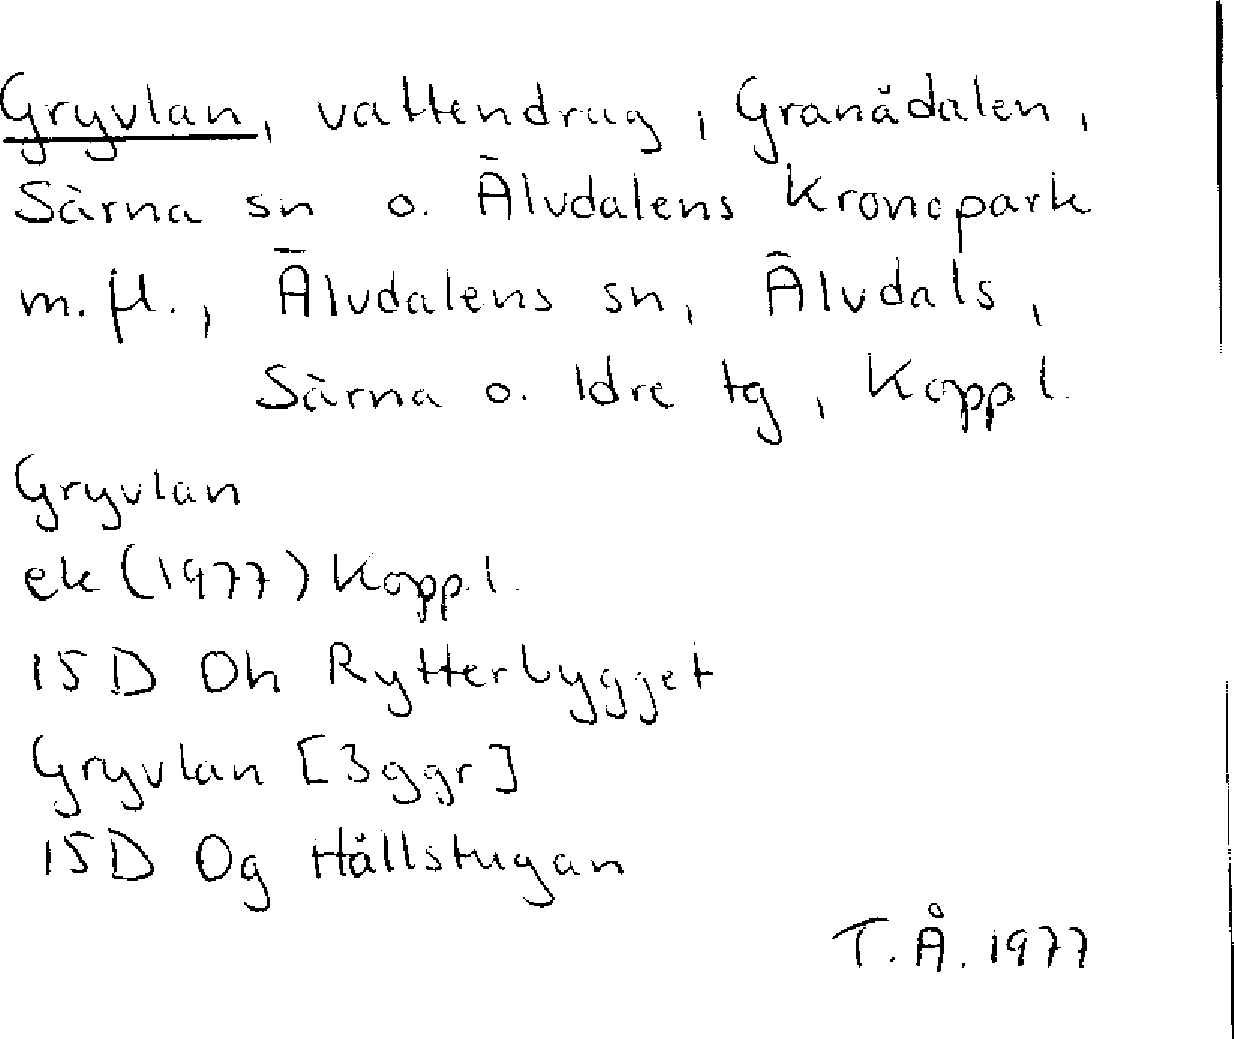 Gryvlan, vattendrag i Granådalen,
Särna sn o. Älvdalens Kronopark
m. fl., Älvdalens sn, Älvdals,
Särna o. Idre tg, Kopp l.
Gryvlan
ek (1977) Kopp. l.
15D Oh Rytterbygget
Gryvlan [3 ggr]
15D Og Hållstugan
T. Å. 1977